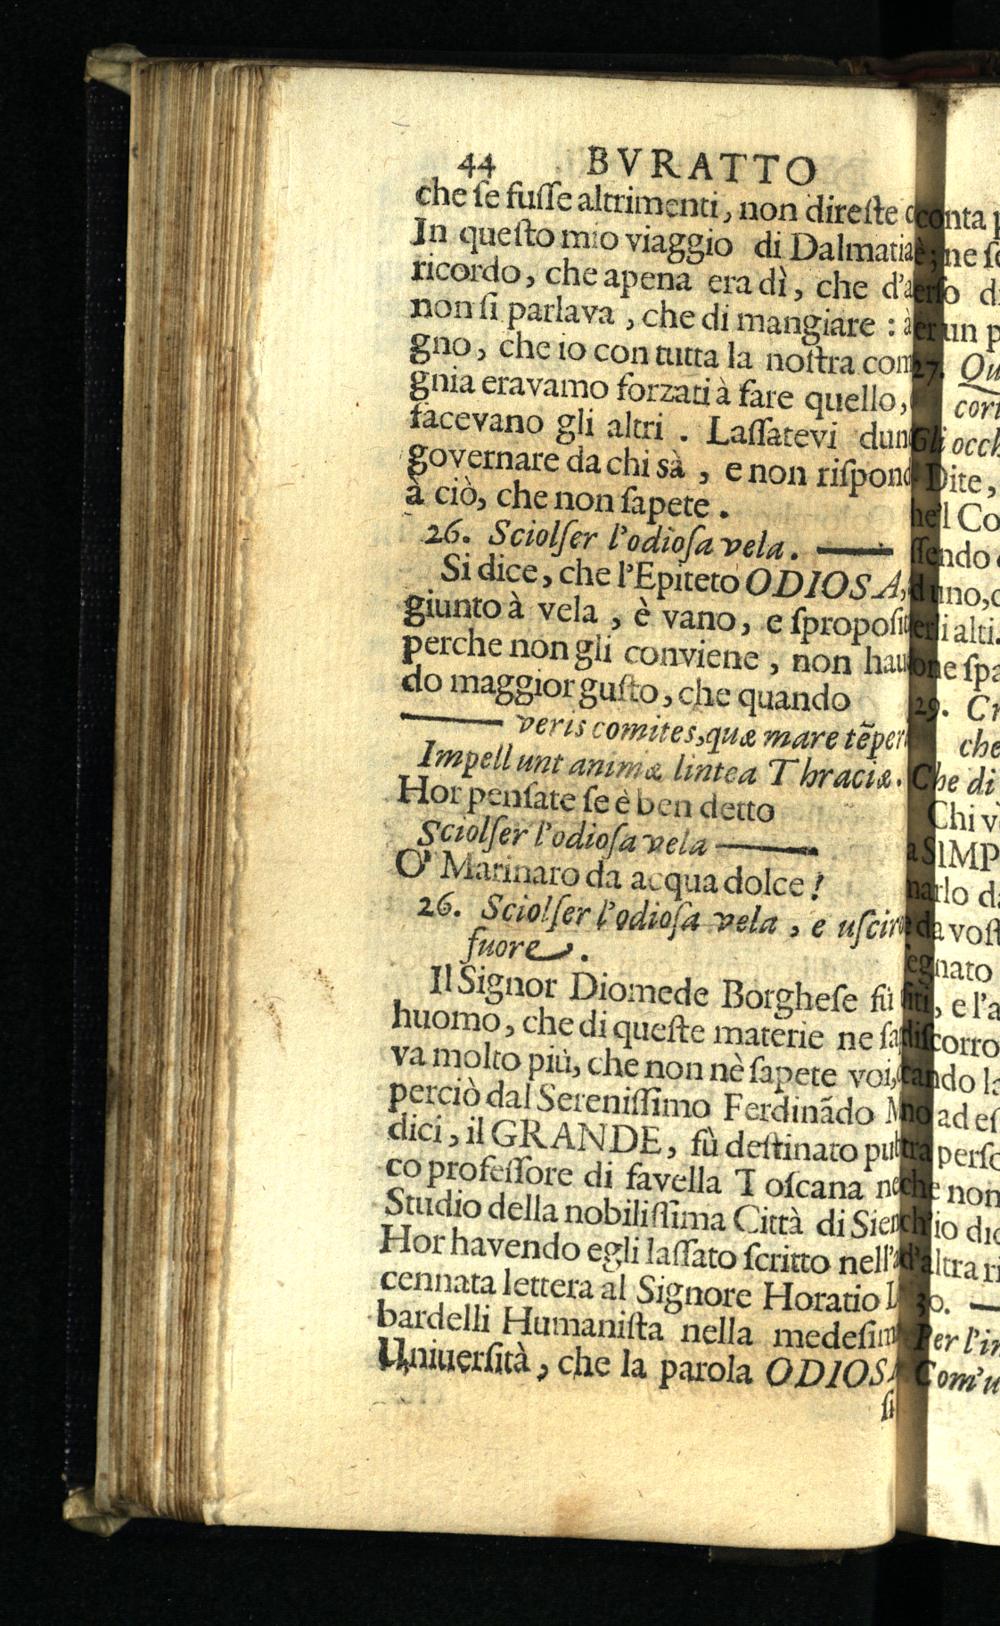 44 BVRATTO
che ſe fuſſe altrimenti, non direſte
In queſto mio viaggio di Dalmatia
ricordo, che apena era dì, che d'a
non ſi parlava, che di mangiare : à
gno, che io con tutta la noſtra com
gnia eravamo forzati à fare quello,
facevano gli altri. Laſſatevi dun
governare da chi sà, e non riſpond
à ciò, che non ſapete.
26. Sciolſer l'odioſa vela. ——
Si dice, che l'Epiteto ODIOSA,
giunto à vela, è vano, e ſpropoſit
perche non gli conviene, non hau
do maggior guſto, che quando
—— veris comites, quæ mare tẽper
Impellunt animæ lintea Thraciæ.
Hor penſate ſe è ben detto
Sciolſer l'odioſa vela ——
O' Marinaro da acqua dolce!
26. Sciolſer l'odioſa vela, e uſcir
fuore.
Il Signor Diomede Borgheſe fù
huomo, che di queſte materie ne ſa
va molto più, che non nè ſapete voi,
perciò dal Sereniſſimo Ferdinãdo M
dici, il GRANDE, fù deſtinato pub
co profeſſore di favella Toſcana ne
Studio della nobiliſſima Città di Sien
Hor havendo egli laſſato ſcritto nell'a
cennata lettera al Signore Horatio L
bardelli Humaniſta nella medeſim
Univerſità, che la parola ODIOSA
ſi
conta
è; ne
erſo
er un
27. Qu
cor
Gli occh
Dite,
he'l Co
ſſendo
d uno,
erli alti.
one ſpa
29. Cr
che
Che di
Chi v
a SIMP
narlo da
da voſt
egnato
ſiti, e l'a
diſcorro
cando la
no ad eſ
tra perſo
che non
ch'io dic
d'altra ri
30. —
Per l'in
Com'u